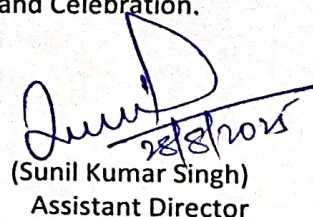 and Celebration.
28/8/2025
(Sunil Kumar Singh)
Assistant Director